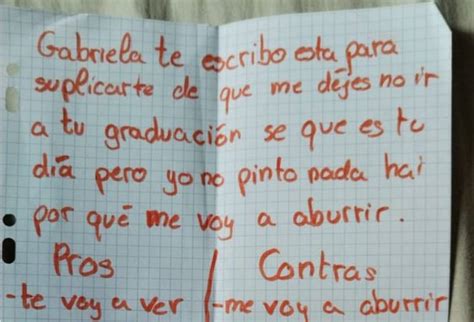 Gabriela te escribo esta para
suplicarte de que me dejes no ir
a tu graduación se que es tu
día pero yo no pinto nada hai
por qué me voy a aburrir.
Pros | Contras
-te voy a ver | -me voy a aburrir